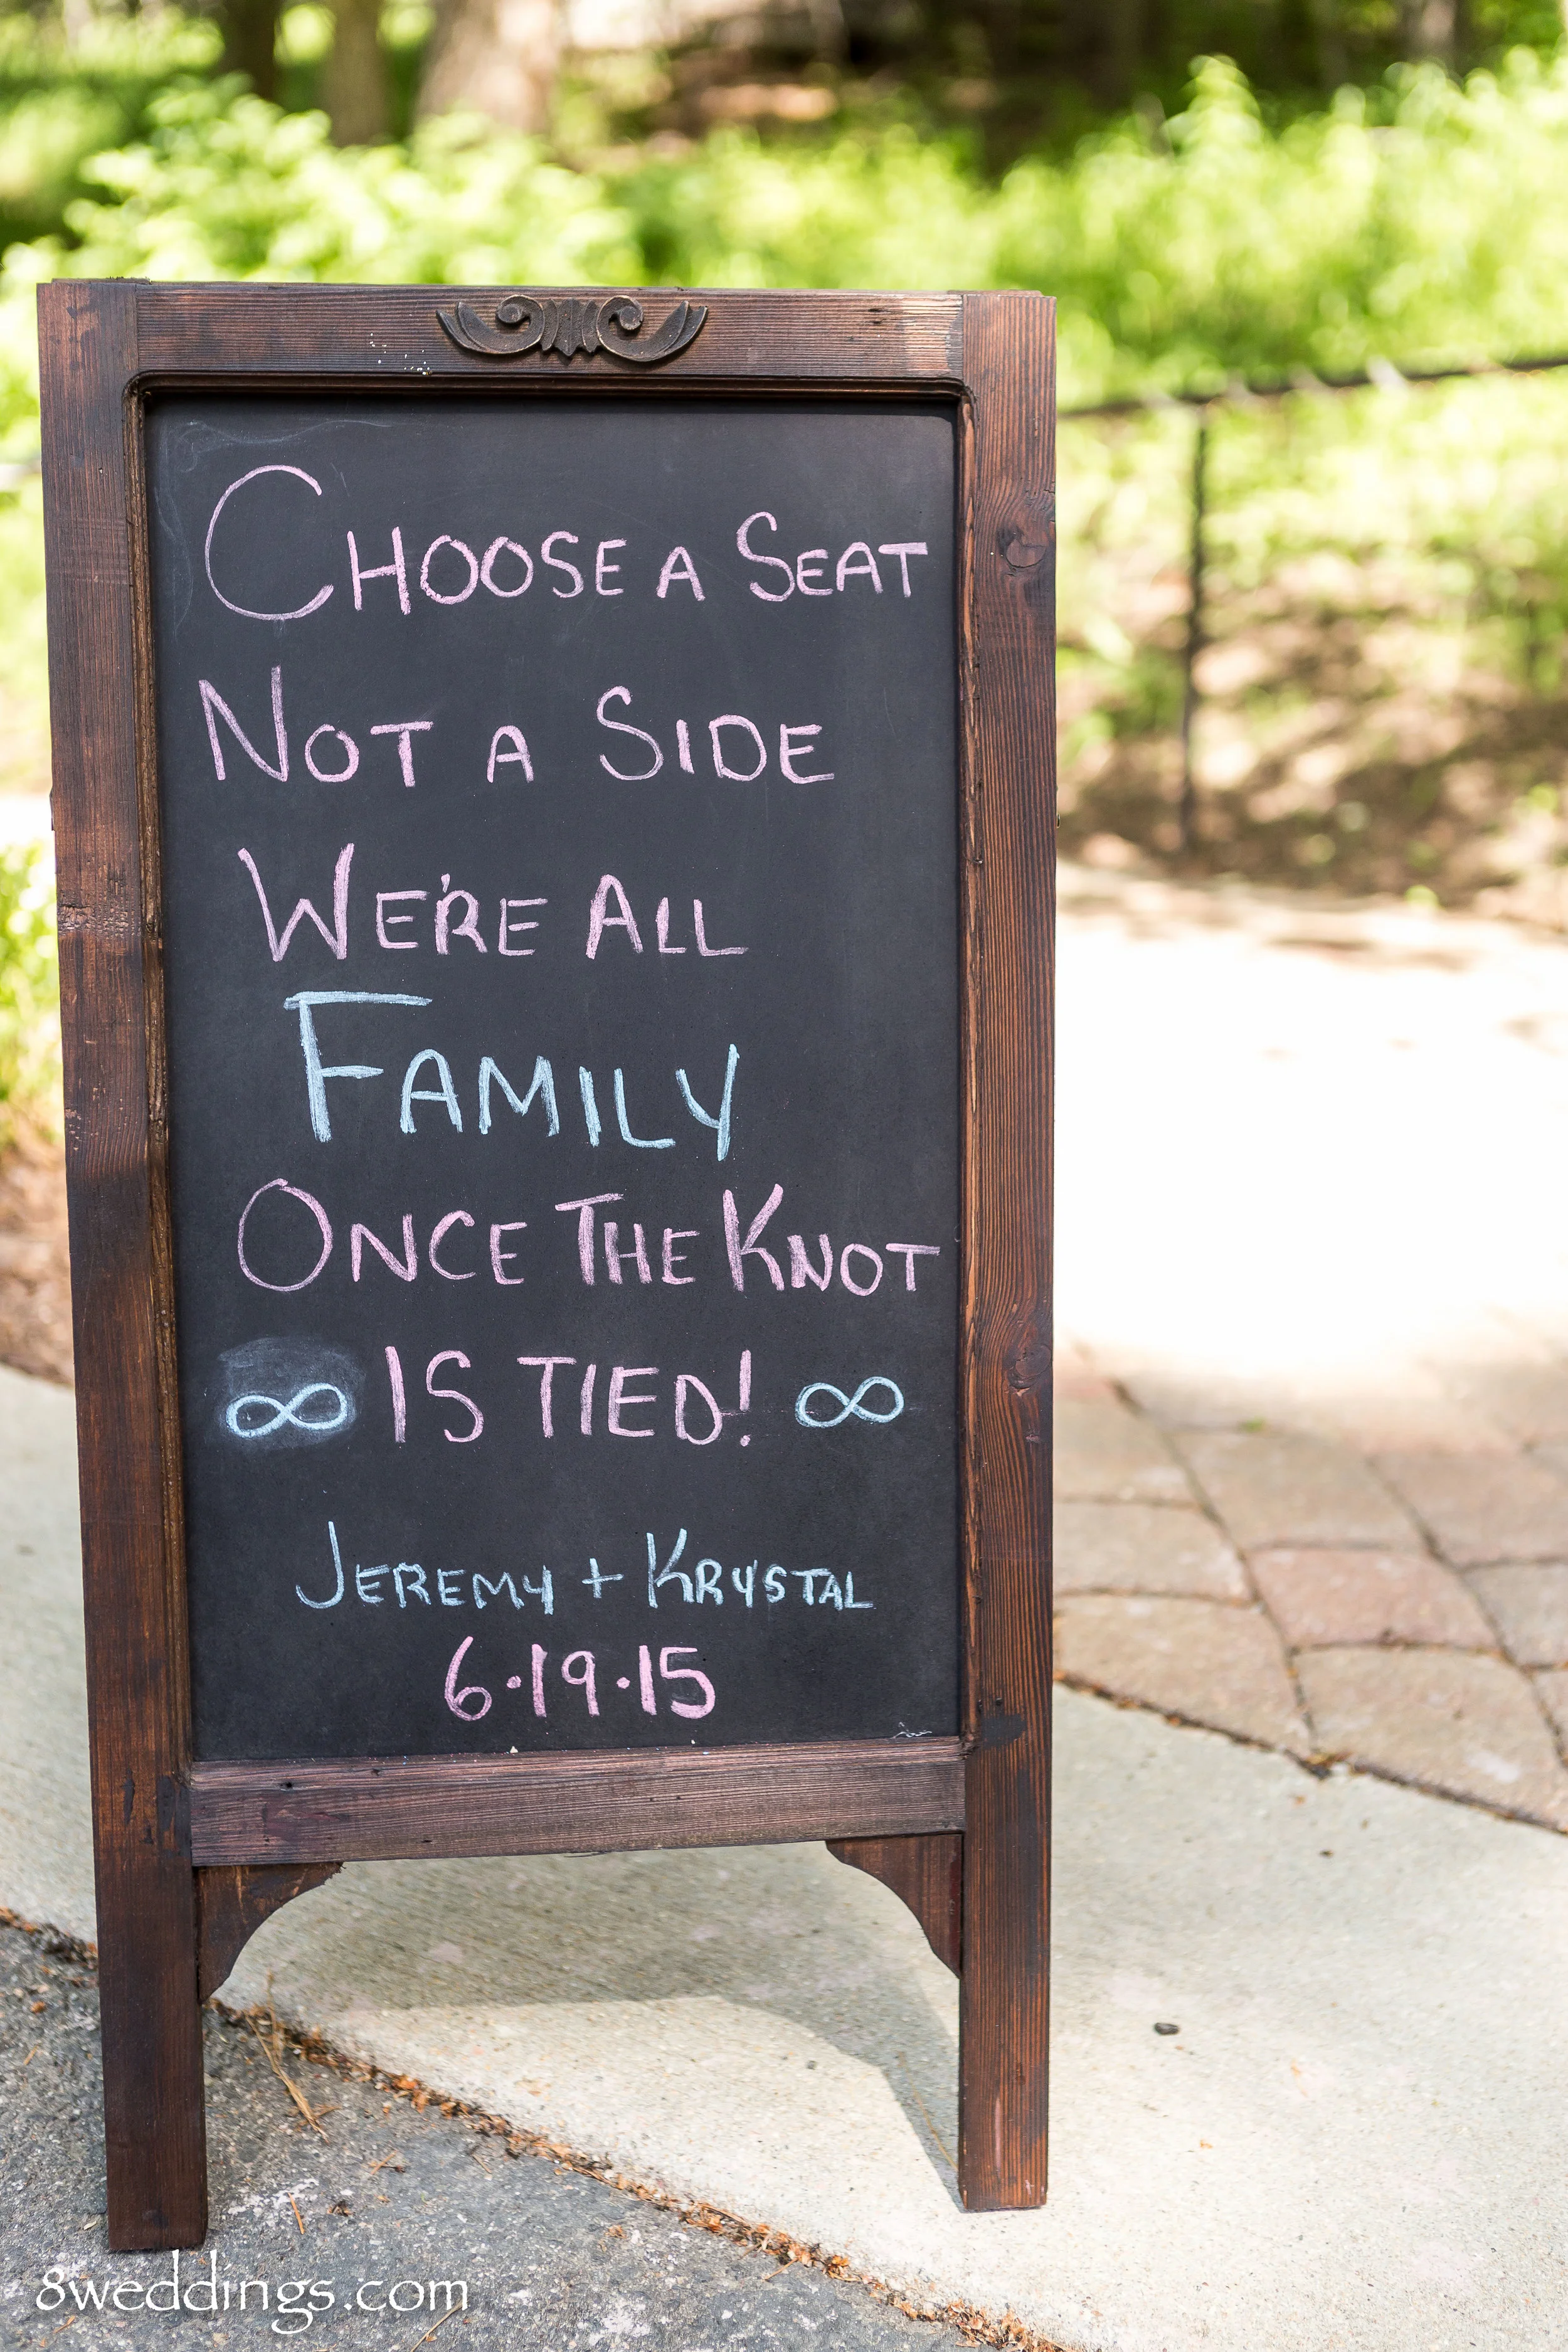 CHOOSE A SEAT
NOT A SIDE
WE'RE ALL
FAMILY
ONCE THE KNOT
∞ IS TIED! ∞
JEREMY + KRYSTAL
6·19·15
8weddings.com